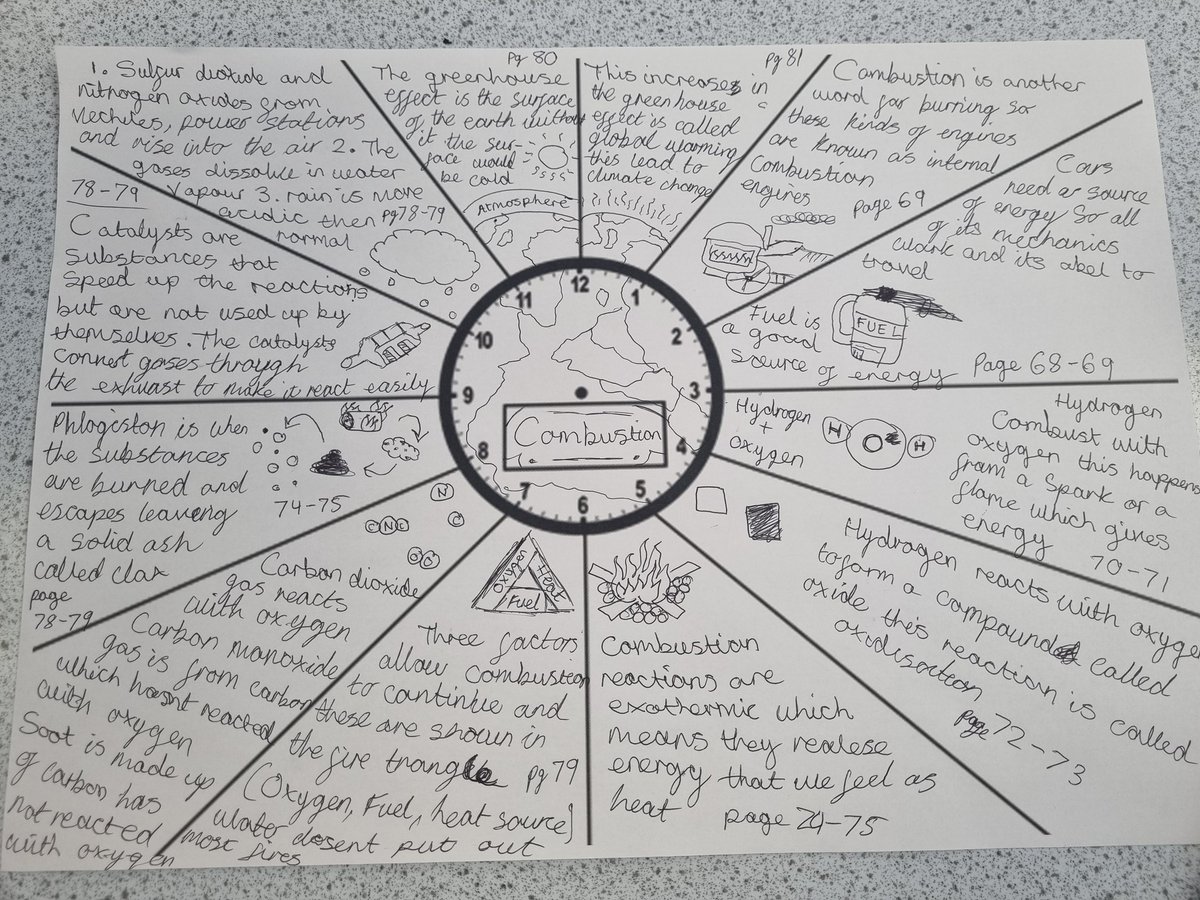 Pg 80
Pg 81
The greenhouse
effect is the surface
of the earth without
it the sur-
face would
be cold
Atmosphere
This increases in
the greenhouse
effect is called
global warming
this lead to
climate change
Combustion is another
word for burning so
these kinds of engines
are known as internal
Combustion
engines
page 69
Cars
need a source
of energy so all
of its mechanics
work and its abel to
travel
Fuel is
a good
source of energy
FUEL
Page 68-69
Hydrogen
+
oxygen
H
O
H
Hydrogen
Combust with
oxygen this happens
from a spark or a
flame which gives
energy
70-71
Hydrogen reacts with oxygen
to form a compound called
oxide this reaction is called
oxidisaction
page 72-73
Combustion
reactions are
exothermic which
means they realese
energy that we feel as
heat
page 74-75
Oxygen
Heat
Fuel
Three factors
allow combustion
to continue and
these are shown in
the fire triangle
pg 79
(Oxygen, Fuel, heat source)
water doesent put out
most fires
N
C
O O
Carbon dioxide
gas reacts
with oxygen
Carbon monoxide
gas is from carbon
which hasnt reacted
with oxygen
Soot is made up
of carbon has
not reacted
with oxygen
Phlogiston is when
the substances
are bunned and
escapes leaveng
a solid ash
called clax
page
78-79
74-75
Catalysts are
substances that
speed up the reactions
but are not used up by
themselves. The catalysts
connet gases through
the exhuast to make it react easily
1. Sulfur dioxide and
nithrogen oxides from
Vechiles, power stations
and rise into the air 2. The
gases dissolve in water
vapour 3. rain is more
acidic then
normal
78-79
pg 78-79
12
1
2
3
4
5
6
7
8
9
10
11
Combustion